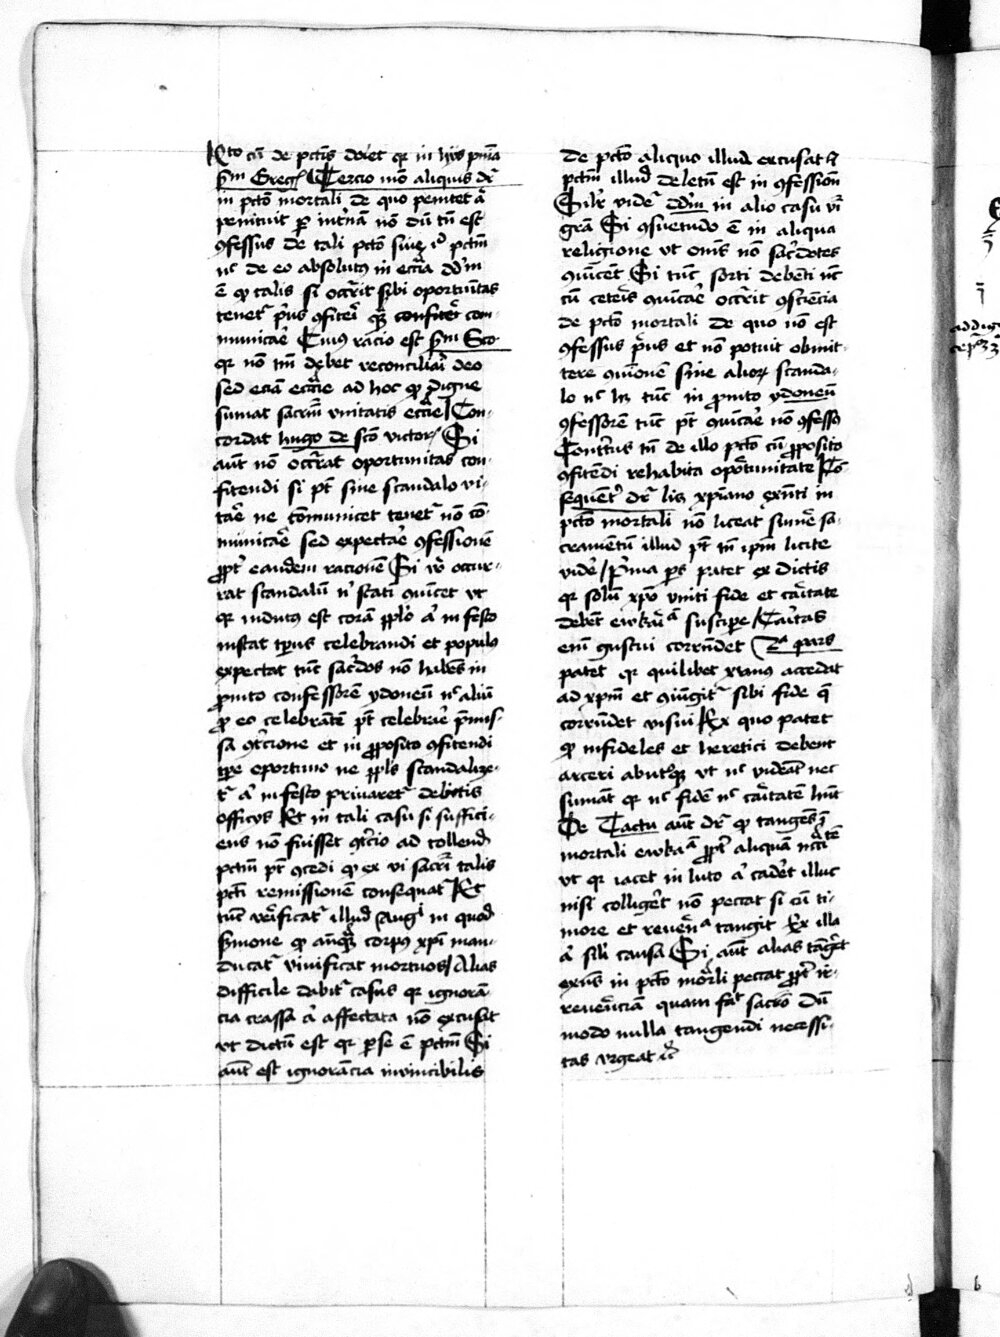 Kto cū de pctīs dolet qr in hijs pn̄ia
ẜm Greg᷒ Tercio mō aliquis dr̄
in pctō mortali de quo penitet a᷒
penituit p int᷒nā nō dū tn̄ est
ꝯfessus de tali pctō siue iⁿ pctm̄
nᶜ de eo absolutꝰ in ecc̄ia dd᷒m
ē qꝫ talis si occr̄it sibi oportūitas
tenet᷒ pⁱus ꝯfiteri qꝫ confiter̄ com
municar̄ Cuiꝰ racio est ẜm Sco
qr nō tm̄ debet reconciliari deo
sed eciā ecc̄ie ad hoc qꝫ digne
sumat sacrm̄ vnitatis ecc̄ie Con
cordat hugo de sc̄o victor᷒ Si
aūt nō occr̄rat oportunitas con
fitendi si pt̄ sine scandalo vi
tar̄e ne cōmunicet tenet᷒ nō cō
municar̄e sed expectar̄e ꝯfessionē
ꝓpt᷒ eandem racionē Si v᷒o occur
rat scandalū nⁱ statī quīicet vt
qr indutꝰ est corā pplo a᷒ in festo
instat tp̄us celebrandi et populꝰ
expectat tūc sac᷒dos nō habēs in
ꝓmto confessorē ydoneū nᶜ aliū
ꝓ eo celebrātē pt̄ celebrar̄e p᷒mis
sa ꝯtⁱcione et in ꝓposito ꝯfitendi
tp̄e oportuno ne ppls scandalize
t᷒ a᷒ in festo priuaret᷒ debitis
officijs Et in tali casu si suffici
ens nō fuisset ꝯtⁱcio ad tollend᷒
pctm̄ pt̄ ꝯcedi qꝫ ex vi sacrī talis
pctī remissionē consequat᷒ Et
tūc v᷒ificat᷒ illud Augⁱ in quod᷒
ẜmone qꝫ aūqꝫ corpꝰ xp̄i man
ducat᷒ viuificat mortuos Alias
difficile dabit᷒ casus qr ignorā
cia crassa a᷒ affectata nō excusat
vt dictū est qr p se ē pctm̄ Si
aūt est ignorancia inuincibilis
de pctō aliquo illud excusat h᷒
pctm̄ illud deletū est in ꝯfessiōn
Silr̄ vider̄ dd᷒m in alio casu v᷒i
grā Si ꝯsuetudo ē in aliqua
religione vt om̄s nō sac᷒dotes
quīicēt Si tūc sorti debēti tūc
cū ceteris quīcar̄e occr̄rit ꝯsciēcia
de pctō mortali de quo nō est
ꝯfessus pⁱus et nō potuit obmit
tere quīonē sine alioꝝ scanda
lo nᶜ hꝫ tūc in ꝓmto ydoneū
ꝯfessorē tūc pt̄ quīcar̄e nō ꝯfess᷒
Contⁱtus tn̄ de illo pctō cū ꝓposito
ꝯfitēdi rehabita oportunitate Cō
sequent᷒ dr̄ lꝫ xp̄iano exn̄ti in
pctō mortali nō liceat sumer̄e sa
cramentū illud pt̄ tn̄ ip̄m licite
vider̄e pⁱma ps patet ex dictis
qr solū xp̄o vniti fide et caritate
debēt ewkar᷒ᵃ suscipe Caritas
enī gustui correspōdet 2ᵃ pars
patet qr quilibet xp̄ianus accedat
ad xp̄m et ꝯiūgit᷒ sibi fide q̄
correspōdet visui Ex quo patet
qꝫ infideles et heretici debent
arceri abutⁱqꝫ vt nᶜ videāt nec
sumāt qr nᶜ fidē nᶜ caritatē hn̄t
De Tactu aūt dr̄ qꝫ tangēs ī
mortali ewkaᵃ ꝓpt᷒ aliquā nc̄citatē
vt qr iacet in luto a᷒ cader̄et illuc
nisi colliger̄et nō peccat si cū ti
more et reuer̄nᵃ tangit Ex illa
a᷒ sili causa Si aūt alias tāger̄et
exn̄s in pctō mor̄li peccat ꝓpt᷒ ir
reuerēciā quam fac᷒ sacr̄o dū
modo nulla tangendi necessi
tas vrgeat iⁿ